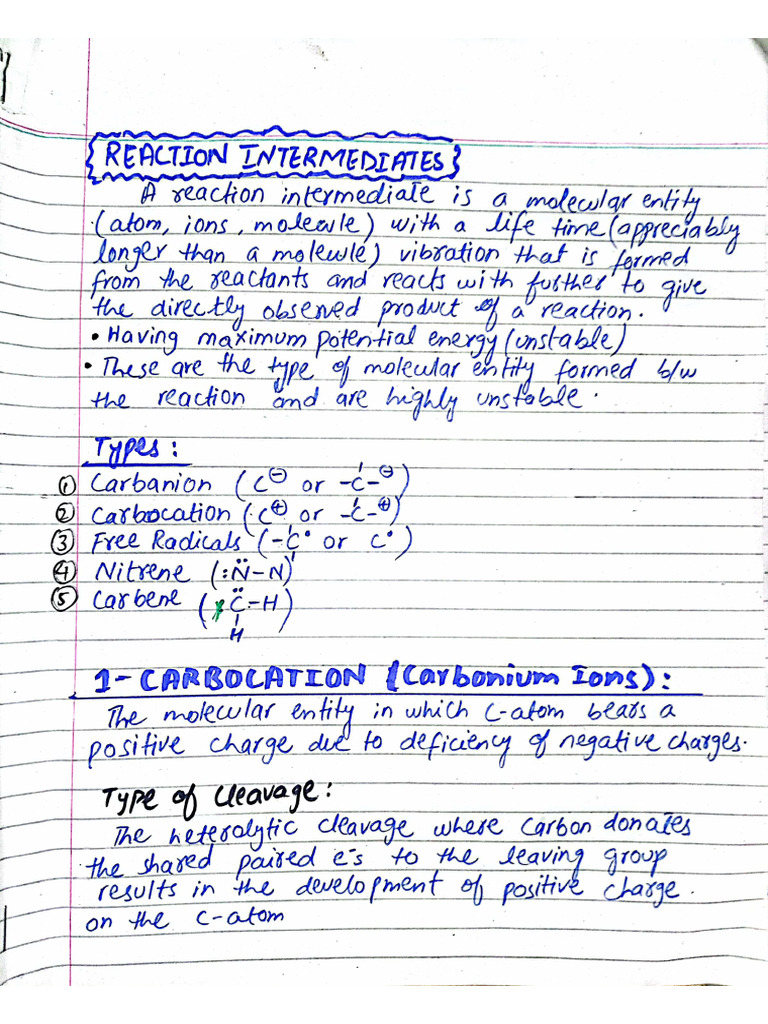 REACTION INTERMEDIATES
A reaction intermediate is a molecular entity
(atom, ions, molecule) with a life time (appreciably
longer than a molecule) vibration that is formed
from the reactants and reacts with further to give
the directly observed product of a reaction.
• Having maximum potential energy (unstable)
• These are the type of molecular entity formed b/w
the reaction and are highly unstable.
Types:
① Carbanion (C⊖ or -C-⊖)
② Carbocation (C⊕ or -C-⊕)
③ Free Radicals (-C• or C•)
④ Nitrene (:N̈-N)
⑤ Carbene (C̈-H)
H
1- CARBOCATION (Carbonium Ions):
The molecular entity in which C-atom bears a
positive charge due to deficiency of negative charges.
Type of Cleavage:
The heterolytic cleavage where Carbon donates
the shared paired e-s to the leaving group
results in the development of positive charge.
on the C-atom